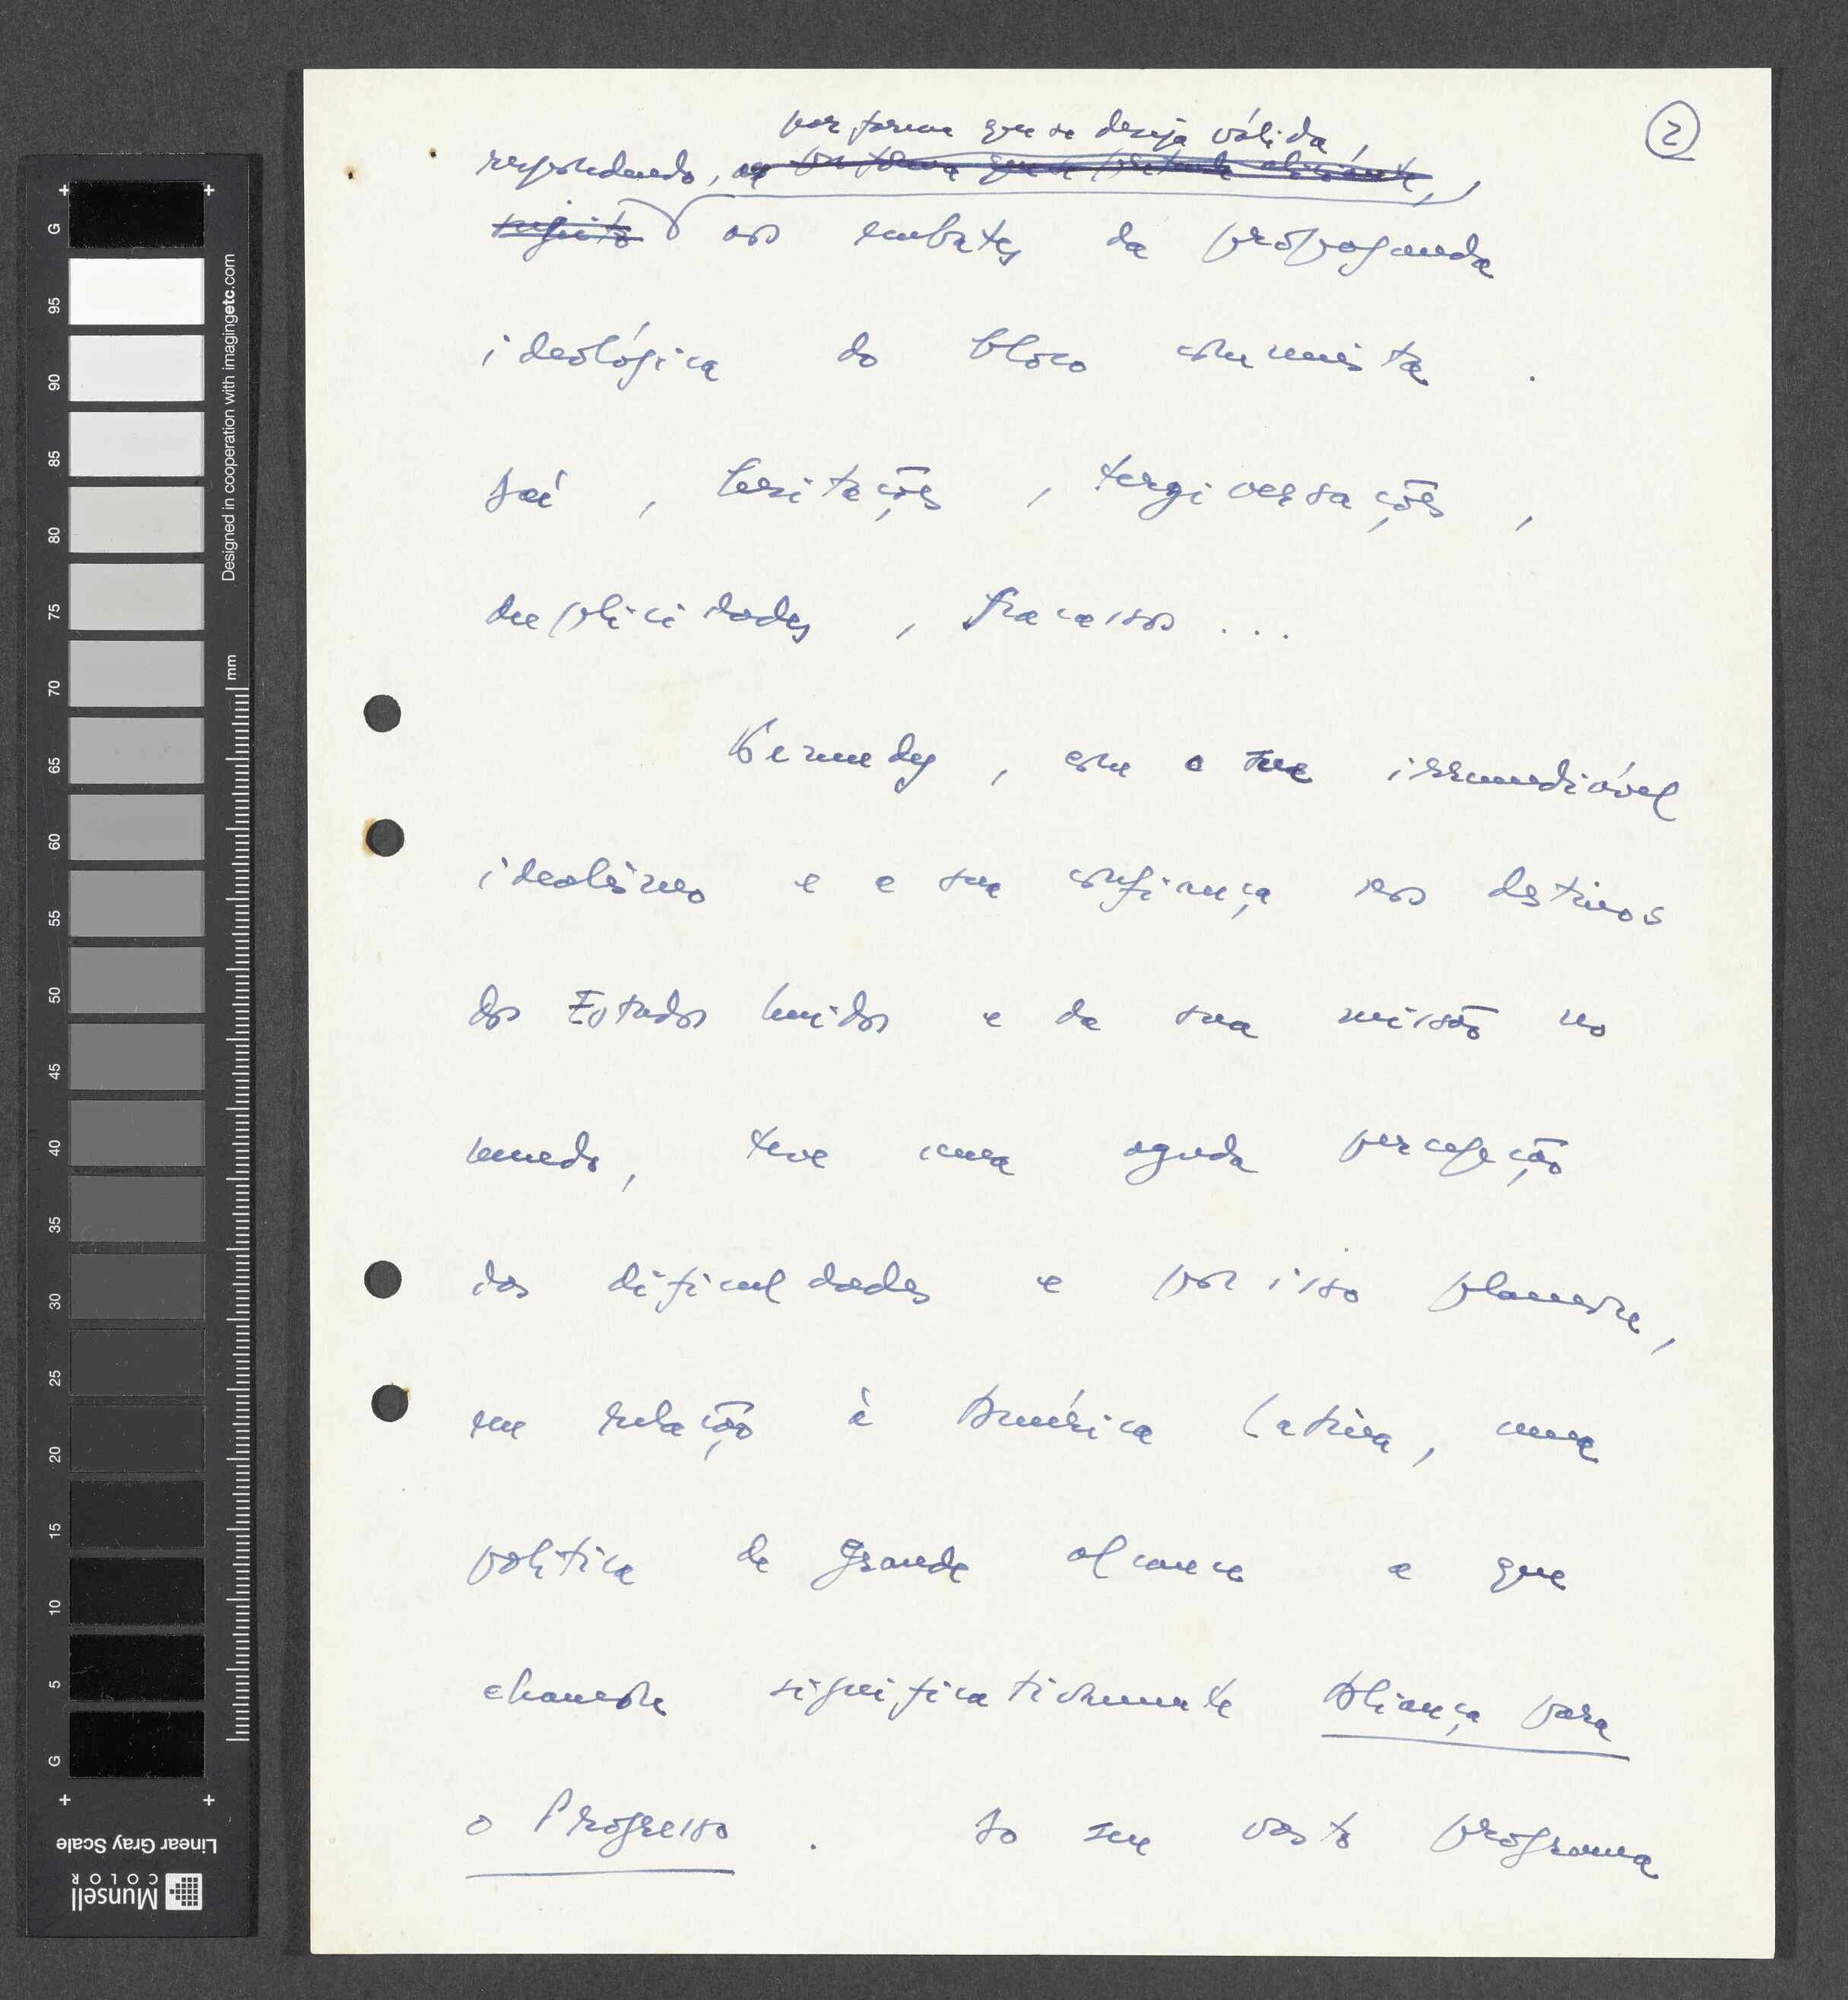 2
por forma que se deseja válida,
respondendo, por forma que se pretende eficiente,
aos embates da propaganda
ideológica do bloco comunista .
Daí , hesitações , tergiversações ,
duplicidades , fracassos ...
Kennedy , com o seu irremediável
idealismo e a sua confiança nos destinos
dos Estados Unidos e da sua missão no
mundo, teve uma aguda percepção
das dificuldades e por isso planeou,
em relação à América Latina, uma
política de grande alcance a que
chamou significativamente Aliança para
o Progresso . Do seu vasto programa
G
95
90
85
80
75
70
65
60
55
50
45
40
35
30
25
20
15
10
5
G
mm
Designed in cooperation with imagingetc.com
Linear Gray Scale
Munsell
COLOR